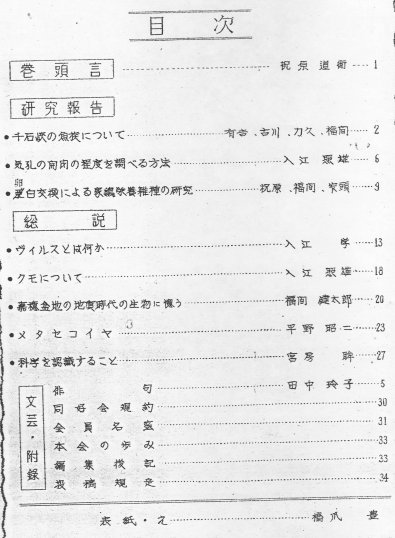 目次
巻頭言 祝原道衛 1
研究報告
・千石峡の魚族について 有吉、古川、刀久、福間 2
・気孔の開閉の程度を調べる方法 入江 6
・卵蛋白交換による家蚕栄養雑種の研究 福間 9
総説
・ヴィルスとは何か 入江 学 13
・クモについて 入江 18
・嘉穂盆地の地質時代の生物に憶う 福間 健太郎 20
・メタセコイヤ 平野昭二 23
・科学を認識すること 宮房 27
文芸・附録
俳句 田中玲子 5
同好会規約 30
会員名簿 31
本会の歩み 33
編集後記 33
投稿規定 34
表紙・え 橋爪 豊